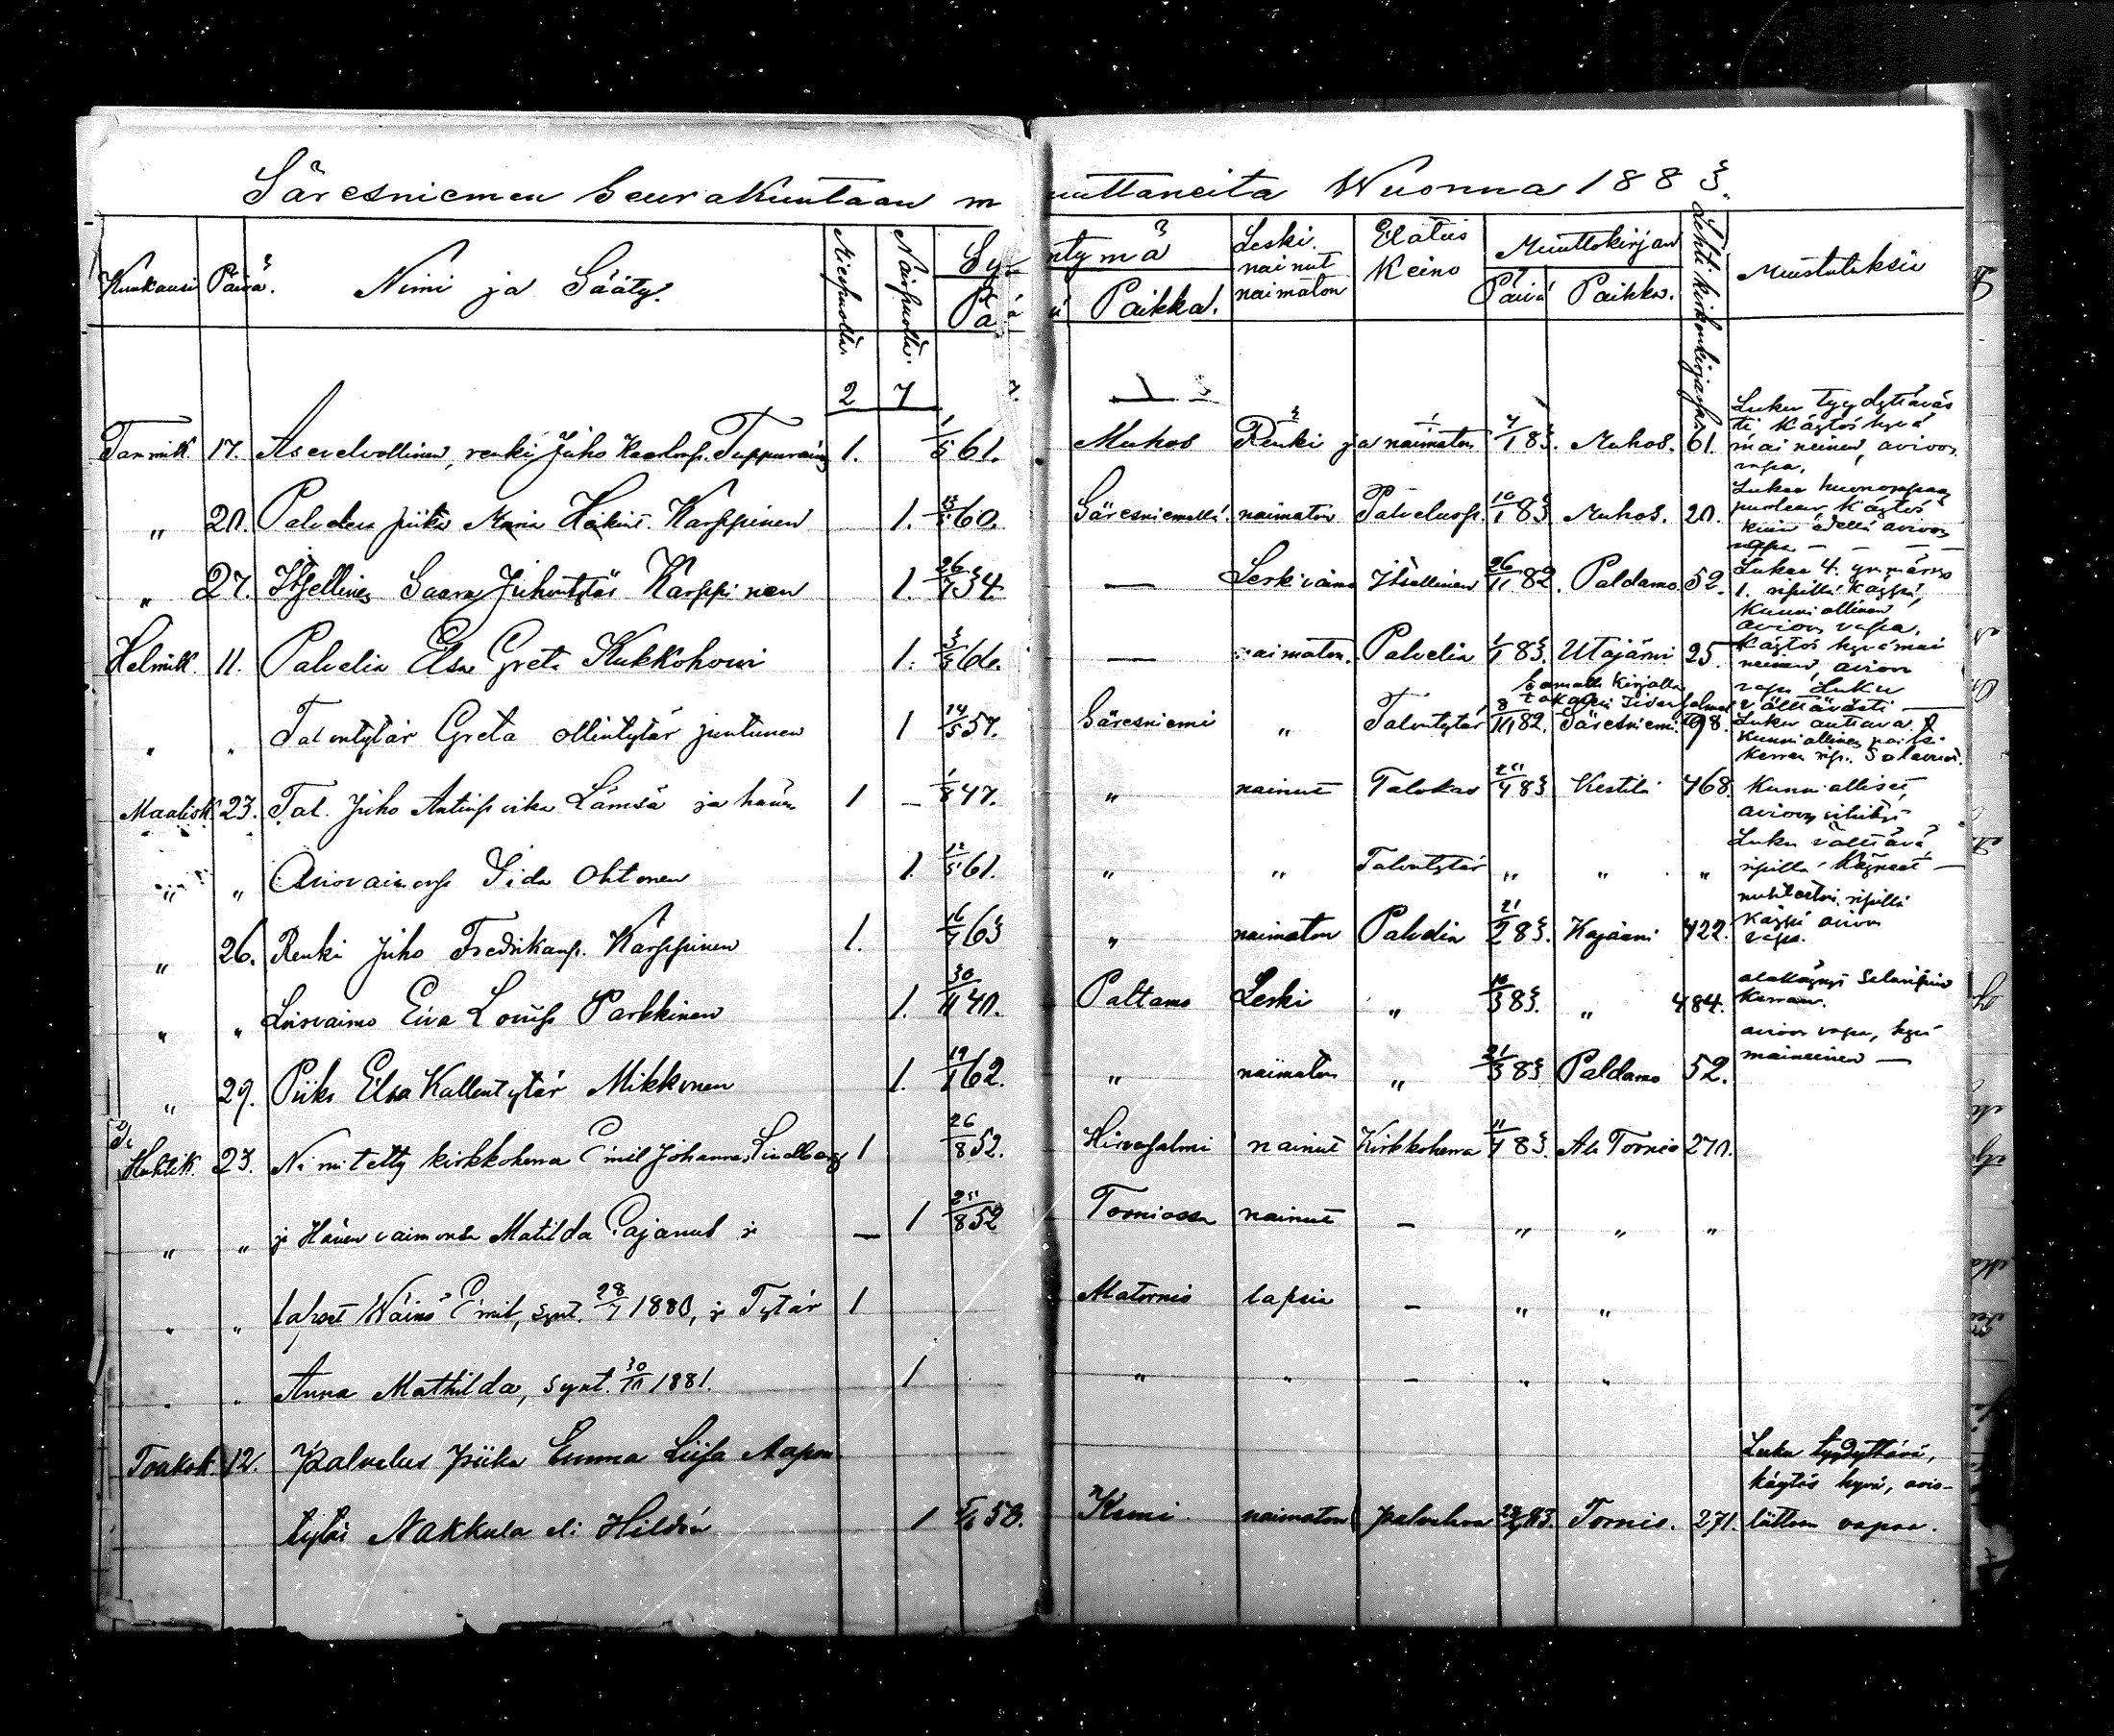 Säresniemen Seurakuntaan muuttaneita Wuonna 1883.
Kuukausi Päivä. Nimi ja Sääty. Miespuolta. Naispuolta. Syntymä Leski. nainut naimaton Elatus Keino Muuttokirjan Lehti kirkonkirjassa Muistutuksia
Päivä Paikka. Päivä Paikka.
2 7
Tammik. 17. Asevelvollinen, renki Juho Kaarlonp. Tuppurainen 1. 1/5 61. Muhos Renki ja naimaton 7/1 83. Muhos. 61. Luku tyydyttäväs
ti käytös hyvä
mai neinen, avioon
vapa.
" 20. Palvelus piika Maria Heikint. Karppinen 1. 13/5 60. Säresniemellä. naimaton Palvelusp. 10/1 83 Muhos. 20. Lukee huonompaan
puoleen, Käytös
kuin edellä avioon
vapa — — —
" 27. Itsellinen Saara Juhontytär Karppinen 1. 26/7 34. — Leskivaimo Itsellinen 26/11 82. Paldamo 52. Lukee 4. ymmärrys
1. ripillä käypä,
Kunniallinen
avioon vapa.
Helmik. 11. Palvelia Elsa Greta Kukkohovi 1. 3/5 66. — naimaton. Palvelia 1/1 83. Utajärvi 25. Käytös hyvämai
neinen, avioon
vapa Luku
välttävästi —
Samalla kirjalla
takasin Sidensalmel
" " Talontytär Greta Ollintytär juntunen 1 14/5 57. Säresniemi " Talontytär 8/11 82. Säresniemi 98. Luku auttava
Kunniallinen paitsi
kerran rip. Salavuot.
Maalisk. 23. Tal. Juho Antinp. vika Lämsä ja hänen 1 — 1/8 47. " nainut Talokas 20/4 83 Kestilä 468. Kunnialliset,
avioon vihityt
" " Aviovaimonsa Iida Ohtonen 1. 12/5 61. " " Talontytär " " " Luku välttävä,
ripillä käyneet —
" 26. Renki Juho Fredrikanp. Karppinen 1. 16/7 63 " naimaton Palvelia 21/2 83. Kajaani 422. nuhteeton ripillä
Käypä avioon
vapa.
" " Loisvaimo Eiva Loviisa Parkkinen 1. 30/11 40. Paltamo Leski " 10/3 83. " 484. salavuoteus
kerran.
" 29. Piika Elsa Kallentytär Mikkonen 1. 19/1 62. " naimaton " 21/3 83 Paldamo 52. avioon vapa, hyvä
maineinen —
Huhtik. 23. Nimitetty kirkkoherra Emil Johannes Lindberg 1 26/8 52. Hirvesalmi nainut Kirkkoherra 11/4 83. Ala Tornio 270.
" " ja Hänen vaimonsa Matilda Cajanus ja — 1 20/8 52 Torniossa nainut — " " "
" " lapset Wäinö Emil, synt. 28/7 1880, ja Tytär 1 Alatornio lapsia — " "
" " Anna Mathilda, synt. 30/11 1881. 1 " " — " "
Toukok. 12. Palvelus piika Emma Liisa Aapon
tytär Nakkula eli Hildén 1 5/6 50. Kemi naimaton palvelva 28/4 83. Tornio. 271. Luku tyydyttävä,
käytös hyvä, avio-
liittoon vapaa.